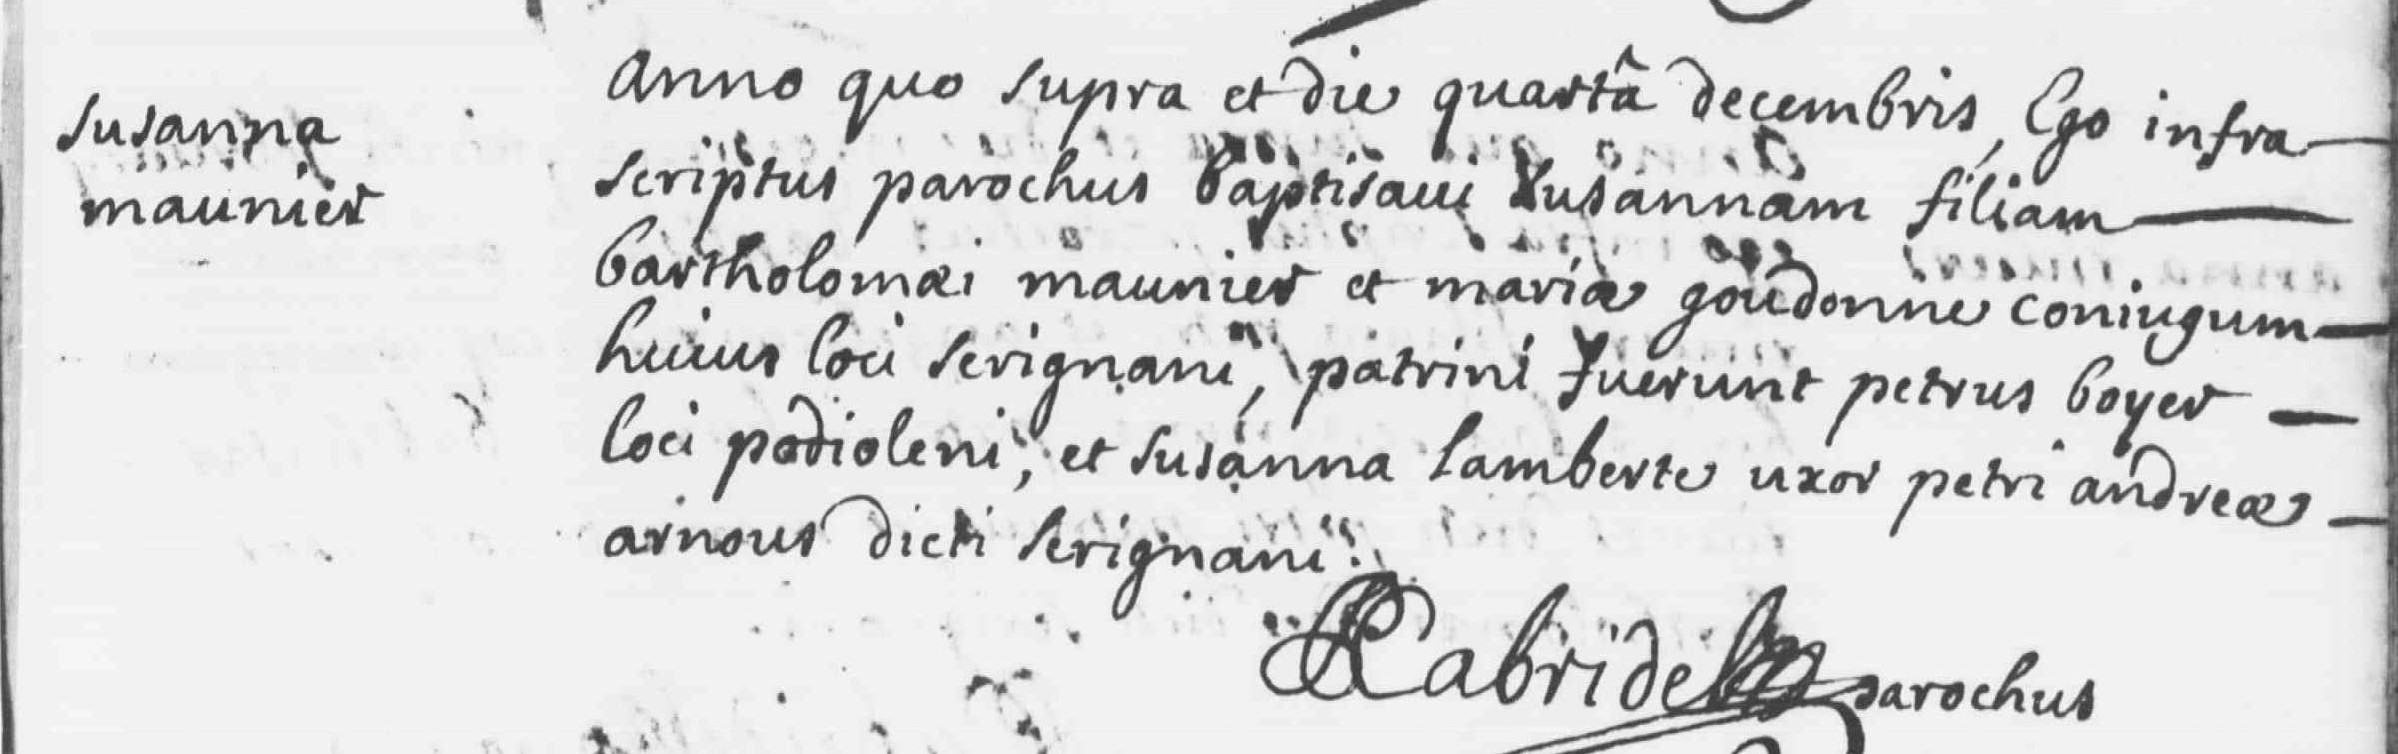 Susanna
maunier
Anno quo supra et die quartâ decembris, Ego infra
scriptus parochus baptisaui Susannam filiam
bartholomæi maunier et mariæ goudonne coniugum
huius loci serignani, patrini fuerunt petrus boyer
loci podioleni, et susanna lamberte uxor petri andreæ
arnous dicti serignani.
Cabridel parochus